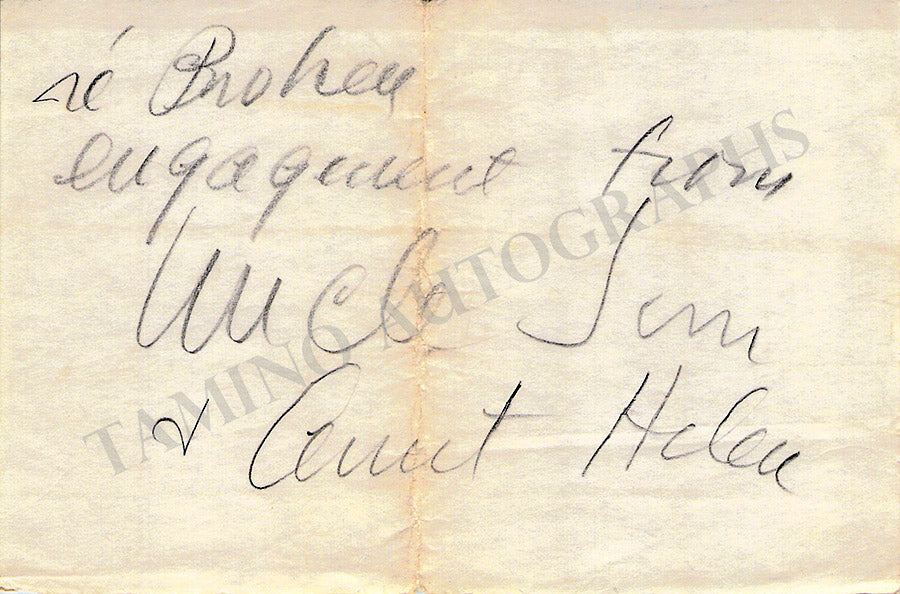 ré Broken
engagement from
Uncle Jim
& Aunt Helen
TAMINO AUTOGRAPHS